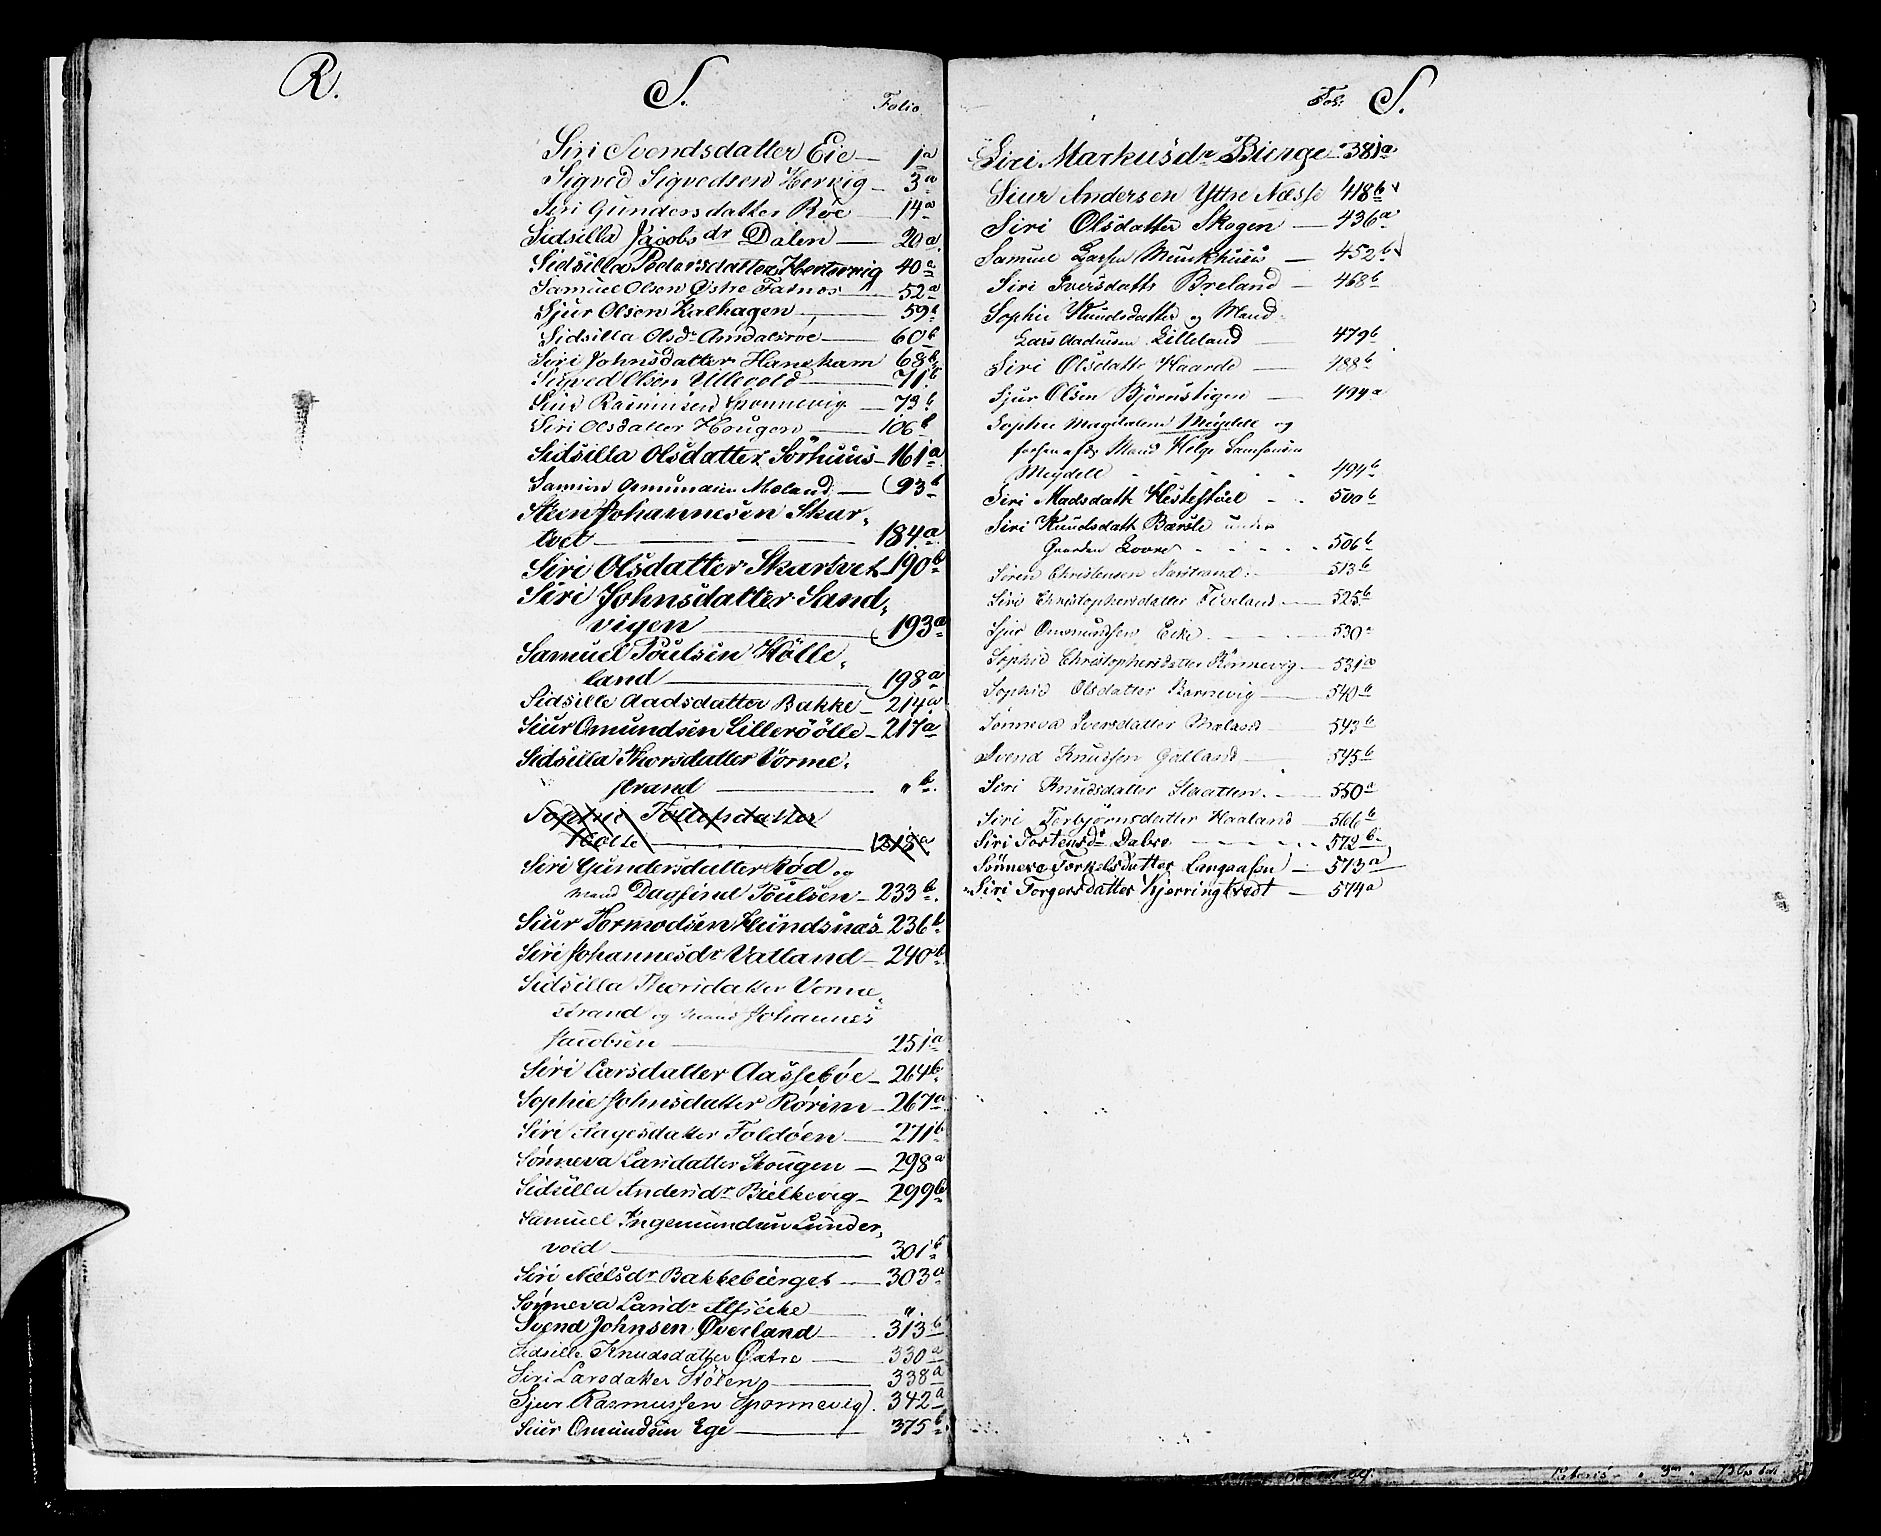 R.
S.
Folio
Siri Svendsdatter Eie — 1a
Sigved Sigvedsen Hervig — 3a
Siri Gundersdatter Røe — 14a
Sidsilla Jacobsdr Dalen — 20a
Sidsilla Pedersdatter Hertervig 40a
Samuel Olsen Østre Fatnes — 52a
Sjur Olsen Kalhagen — 59b
Sidsilla Olsdr Amdalsroe — 60b
Siri Johnsdatter Hanakam 68b
Sigved Olsen Ullevold — 71b
Siur Rasmusen Sponnevig — 73b
Siri Olsdatter Hougen — 106b
Sidsilla Olsdatter Sörhuus — 161a
Samuel Omundsen Moland — 93b
Steen Johannesen Skar-
tvet — 184a
Siri Olsdatter Skartvet — 190b
Siri Johnsdatter Sand-
vigen — 193a
Samuel Poulsen Hölle-
land — 198a
Sidsille Aadsdatter Bakke — 214a
Siur Omundsen Lilleröölle — 217a
Sidsilla Thorsdatter Vorme-
strand — " b
Sophie Tollefsdatter
Holle — 218a
Siri Gundersdatter Rød og
Mand Dagfind Poulsen — 233b
Siur Tormodsen Hundsnæs — 236b
Siri Johannesdr Vatland — 240b
Sidsilla Thorsdatter Vorme-
strand og Mand Johannes
Jacobsen — 251a
Siri Larsdatter Aassebøe — 264b
Sophie Johnsdatter Rörim — 267a
Siri Aagesdatter Foldöen — 271b
Sönneva Larsdatter Hougen — 298a
Sidsilla Andersdr Bielkevig — 299b
Samuel Ingemundsen Lunder-
vold — 301b
Siri Nielsdr Bakkebierget — 303a
Sönneva Larsdr — "
Svend Johnsen Øverland — 313b
Sidsille Knudsdatter Østre — 330a
Siri Larsdatter Stölen — 338a
Sjur Rasmussen Sponnevig 342a
Siur Omundsen Ege — 375b
Fol: S.
Siri Markusdr Bierge — 381a
Siur Andersen Yttre Næsse 418b
Siri Olsdatter Skogen — 436a
Samuel Larsen Munkhuus — 452b
Siri Iversdatter Breland — 468b
Sophie Knudsdatter og Mand
Lars Aadnesen Lilleland — 479b
Siri Olsdatter Haarde — 488b
Sjur Olsen Bjørnstigen — 494a
Sophie Magdalene Meydell og
forhen afdr Mand Helge Samsonsen
Meydell 494b
Siri Madsdatter Hestestöel 500b
Siri Knudsdatter Barsle under
Gaarden Lovre 506b
Sören Christensen Narstrand — 513b
Siri Christophersdatter Tveland — 525b
Sjur Omundsen Eike — 530a
Sophie Christophersdatter Rönnevig — 531a
Sophie Olsdatter Barnevig — 540b
Sönneva Iversdatter Moland — 543b
Svend Knudsen Galland — 545b
Siri Knudsdatter Staatten — 550a
Siri Torbjørnsdatter Haaland — 566b
Siri Torstensdr Dabro — 572b
Sönneva Torkelsdatter Langaasen — 573a
Siri Torgersdatter Kjerringtvedt — 574a